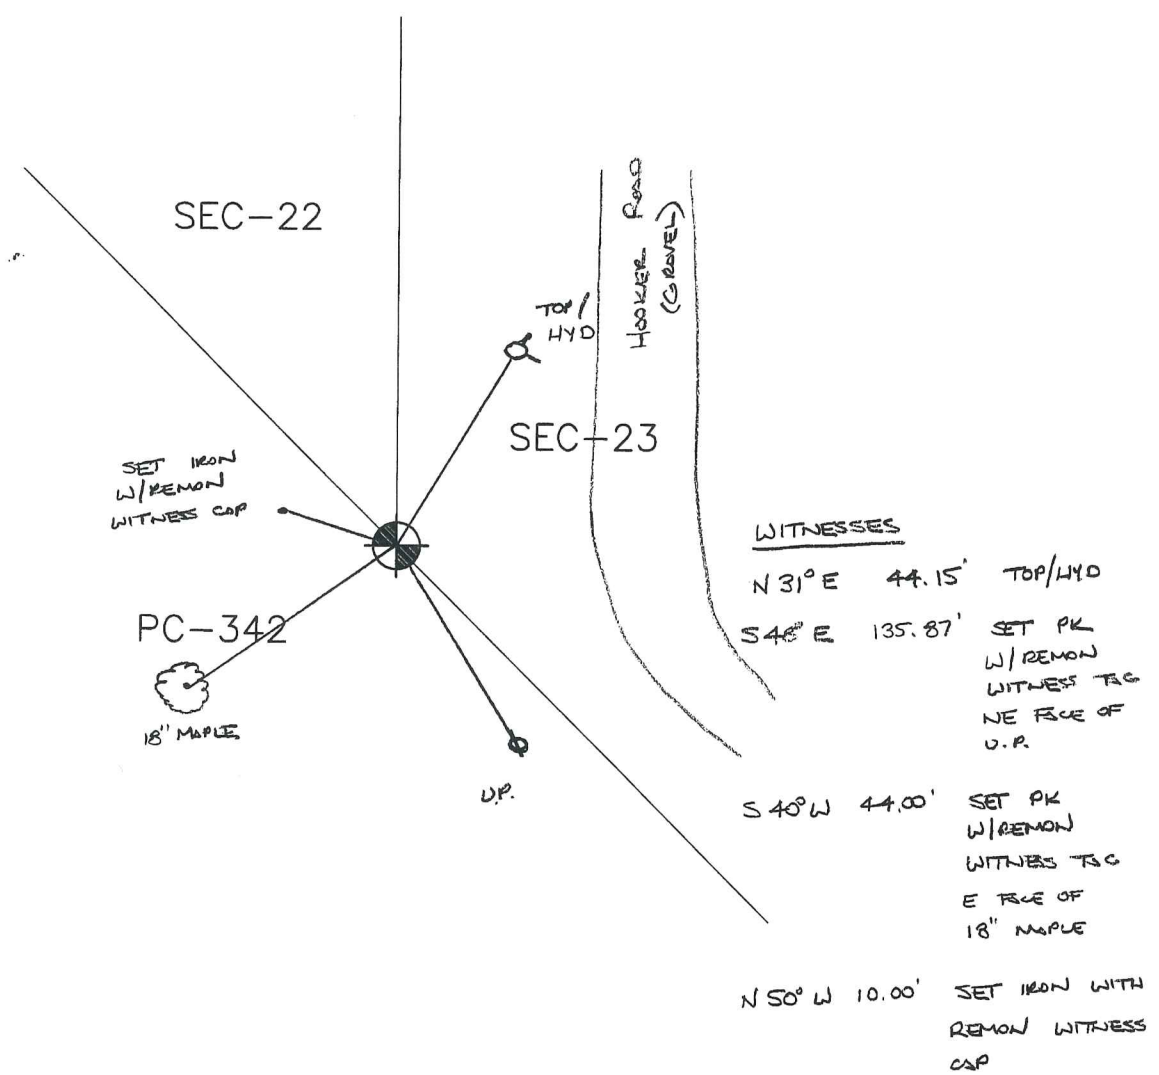 SEC-22
HOOKER ROAD
(GRAVEL)
TOP/
HYD
SEC-23
SET IRON
W/REMON
WITNESS CAP
PC-342
18" MAPLE
U.P.
WITNESSES
N 31° E 44.15' TOP/HYD
S 46° E 135.87' SET PK
W/REMON
WITNESS TAG
NE FACE OF
U.P.
S 40° W 44.00' SET PK
W/REMON
WITNESS TAG
E FACE OF
18" MAPLE
N 50° W 10.00' SET IRON WITH
REMON WITNESS
CAP